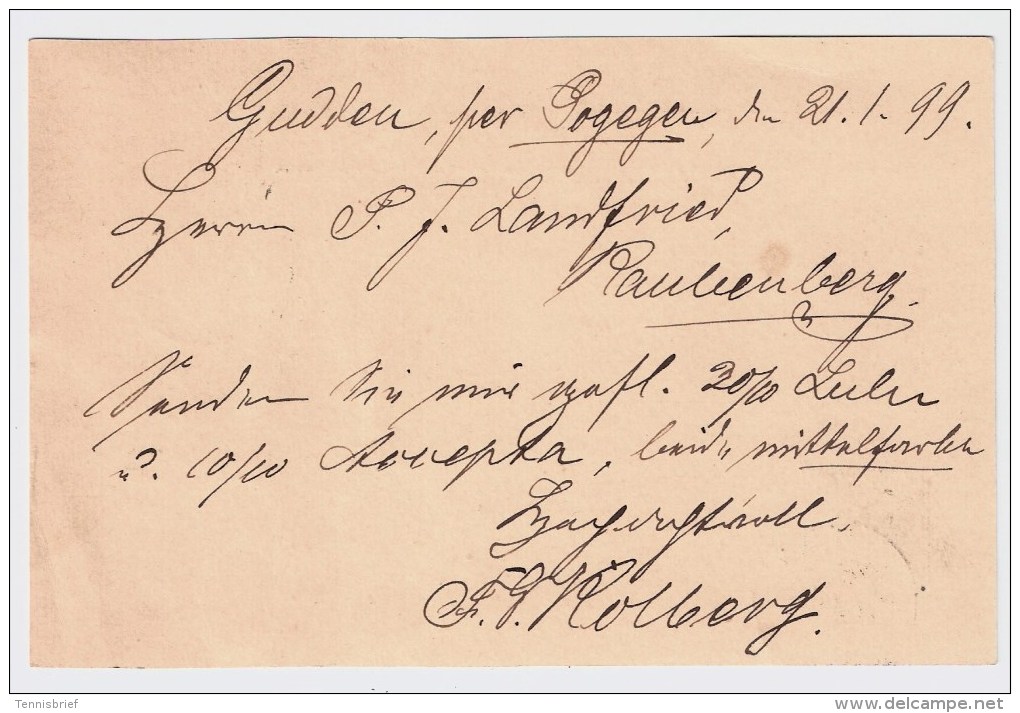 Gudden, per Pogegen, den 21.1.99.
Herrn P. J. Landfried,
Raubenberg.
Senden Sie mir gefl. 20/10 Lulu
u. 10/10 Accepta, beide mittelfarben
Hachachtvoll
F. G. Kolberg.
Tennisbrief
delcampe.net